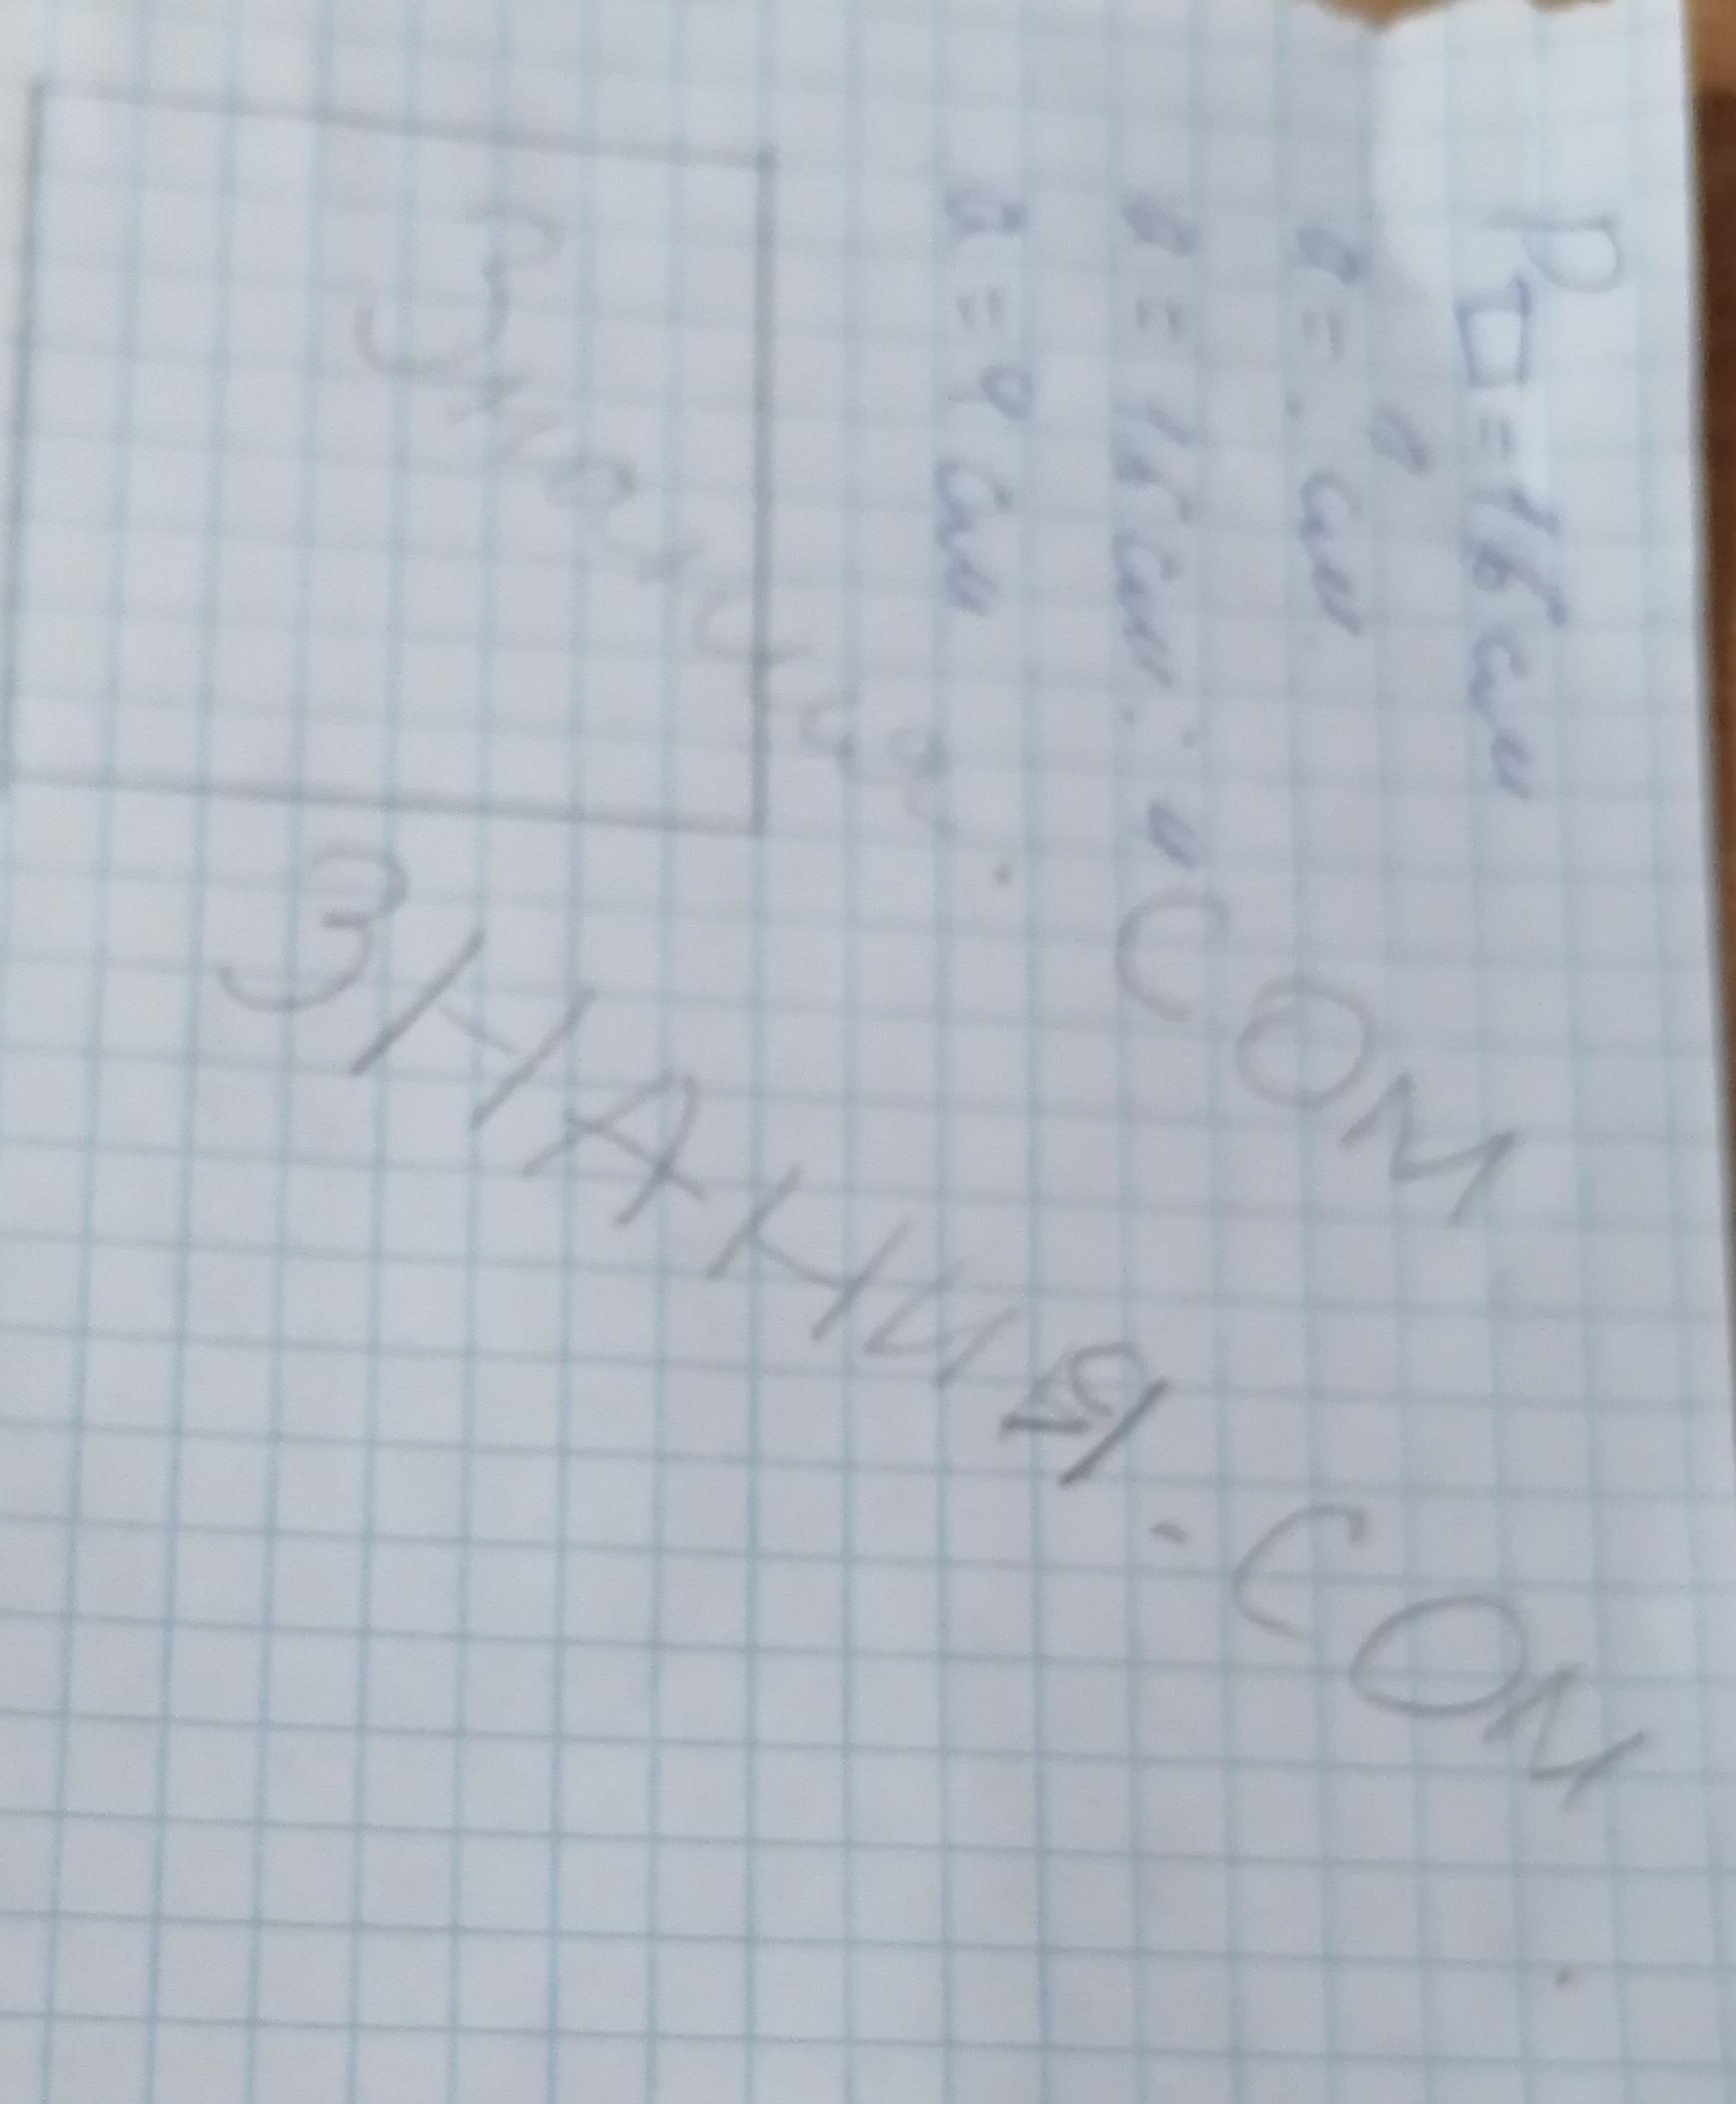 P□ = 16 см
a = . см
a = 16 см : 4
a = 4 см
Знания.COM
ЗНАНИЯ.COM